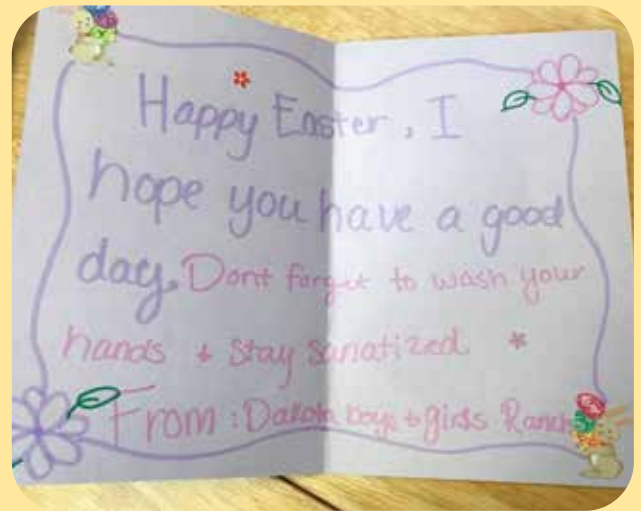 Happy Easter, I
hope you have a good
day, Dont forget to wash your
hands + stay sanatized
From: Dakota boys + girls Ranch